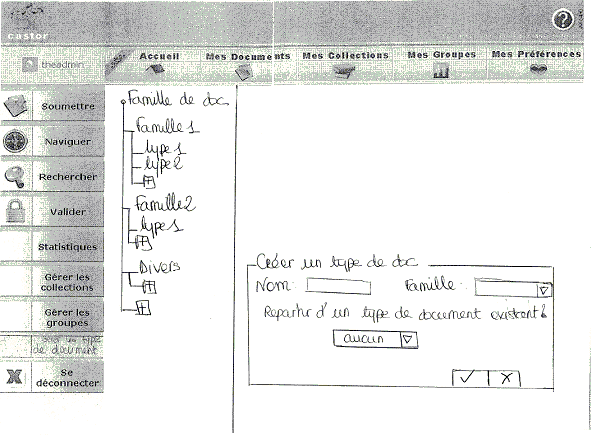 castor
theadmin
Accueil
Mes Documents
Mes Collections
Mes Groupes
Mes Préférences
?
Soumettre
Naviguer
Rechercher
Valider
Statistiques
Gérer les
collections
Gérer les
groupes
un type
de document
Se
déconnecter
Famille de doc
Famille 1
type 1
type 2
+
Famille 2
type 1
+
Divers
+
+
Créer un type de doc
Nom: Famille:
Repartir d'un type de document existant:
aucun